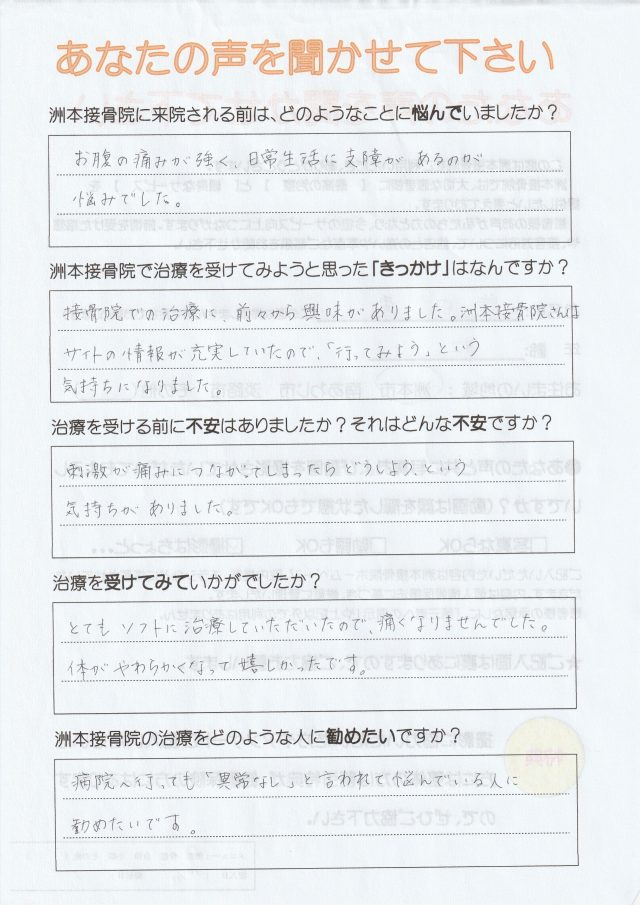 あなたの声を聞かせて下さい
洲本接骨院に来院される前は、どのようなことに悩んでいましたか？
お腹の痛みが強く、日常生活に支障があるのが
悩みでした。
洲本接骨院で治療を受けてみようと思った「きっかけ」はなんですか？
接骨院での治療に、前々から興味がありました。洲本接骨院さんは
サイトの情報が充実していたので、「行ってみよう」という
気持ちになりました。
治療を受ける前に不安はありましたか？それはどんな不安ですか？
刺激が痛みにつながってしまったらどうしよう、という
気持ちがありました。
治療を受けてみていかがでしたか？
とてもソフトに治療していただいたので、痛くなりませんでした。
体がやわらかくなって嬉しかったです。
洲本接骨院の治療をどのような人に勧めたいですか？
病院へ行っても「異常なし」と言われて悩んでいる人に
勧めたいです。